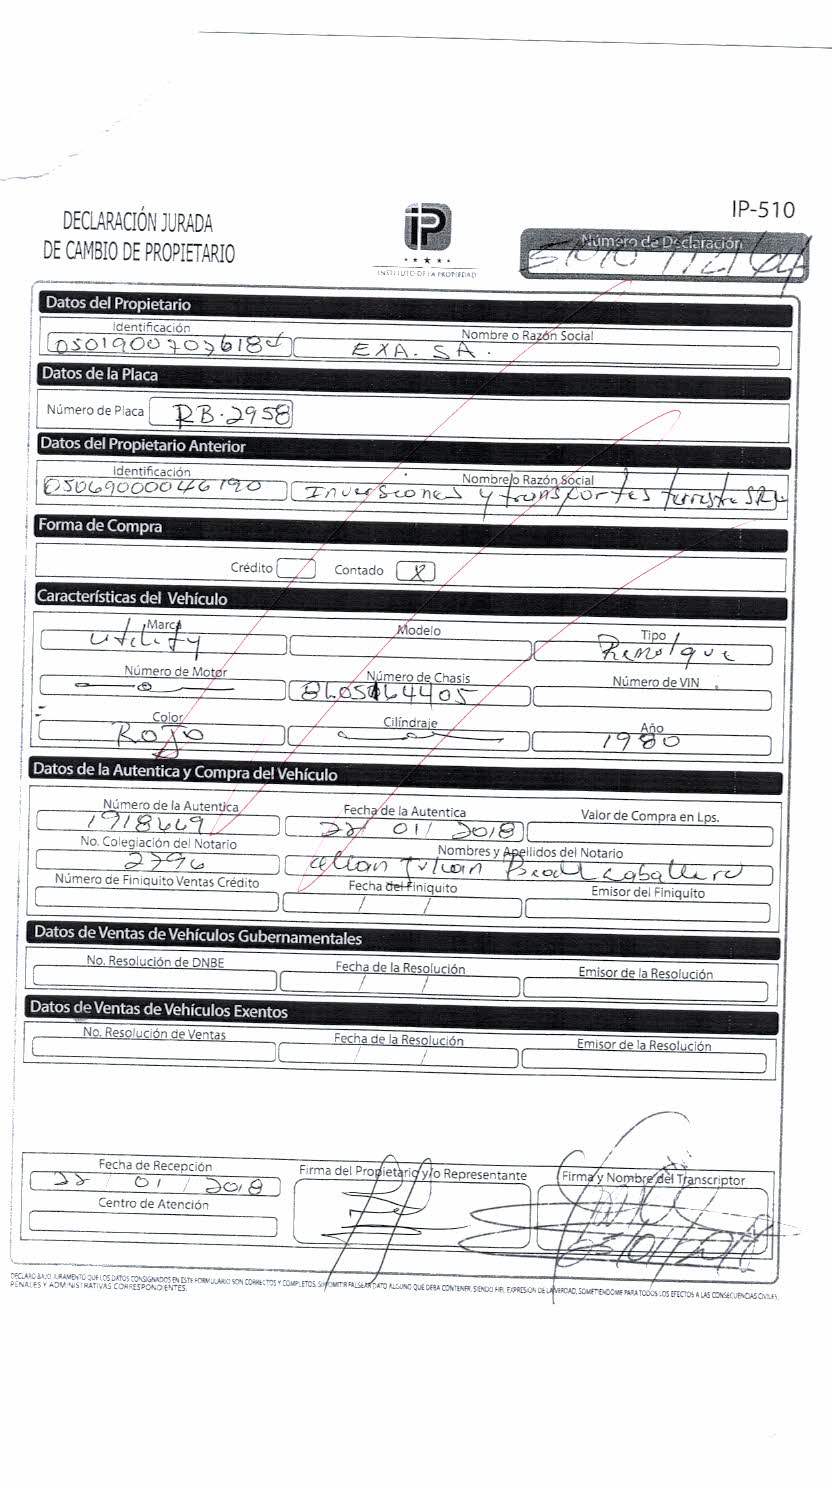 IP-510
DECLARACIÓN JURADA
DE CAMBIO DE PROPIETARIO
iP
INSTITUTO DE LA PROPIEDAD
Número de Declaración
Datos del Propietario
Identificación Nombre o Razón Social
EXA. SA.
Datos de la Placa
Número de Placa RB-2958
Datos del Propietario Anterior
Identificación Nombre o Razón Social
05069000046190 Inversiones y transportes terrestre SRL
Forma de Compra
Crédito Contado X
Características del Vehículo
Marca Modelo Tipo
utility Remolque
Número de Motor Número de Chasis Número de VIN
Color Cilindraje Año
ROJO 1980
Datos de la Autentica y Compra del Vehículo
Número de la Autentica Fecha de la Autentica Valor de Compra en Lps.
1918669 22/ 01/ 2018
No. Colegiación del Notario Nombres y Apellidos del Notario
2796 Julian Caballero
Número de Finiquito Ventas Crédito Fecha del Finiquito Emisor del Finiquito
/ /
Datos de Ventas de Vehículos Gubernamentales
No. Resolución de DNBE Fecha de la Resolución Emisor de la Resolución
/ /
Datos de Ventas de Vehículos Exentos
No. Resolución de Ventas Fecha de la Resolución Emisor de la Resolución
/ /
Fecha de Recepción Firma del Propietario y/o Representante Firma y Nombre del Transcriptor
22 / 01 / 2018
Centro de Atención
DECLARO BAJO JURAMENTO QUE LOS DATOS CONSIGNADOS EN ESTE FORMULARIO SON CORRECTOS Y COMPLETOS, SIN OMITIR FALSEAR DATO ALGUNO QUE DEBA CONTENER, SIENDO FIEL EXPRESION DE LA VERDAD, SOMETIENDOME PARA TODOS LOS EFECTOS A LAS CONSECUENCIAS CIVILES,
PENALES Y ADMINISTRATIVAS CORRESPONDIENTES.